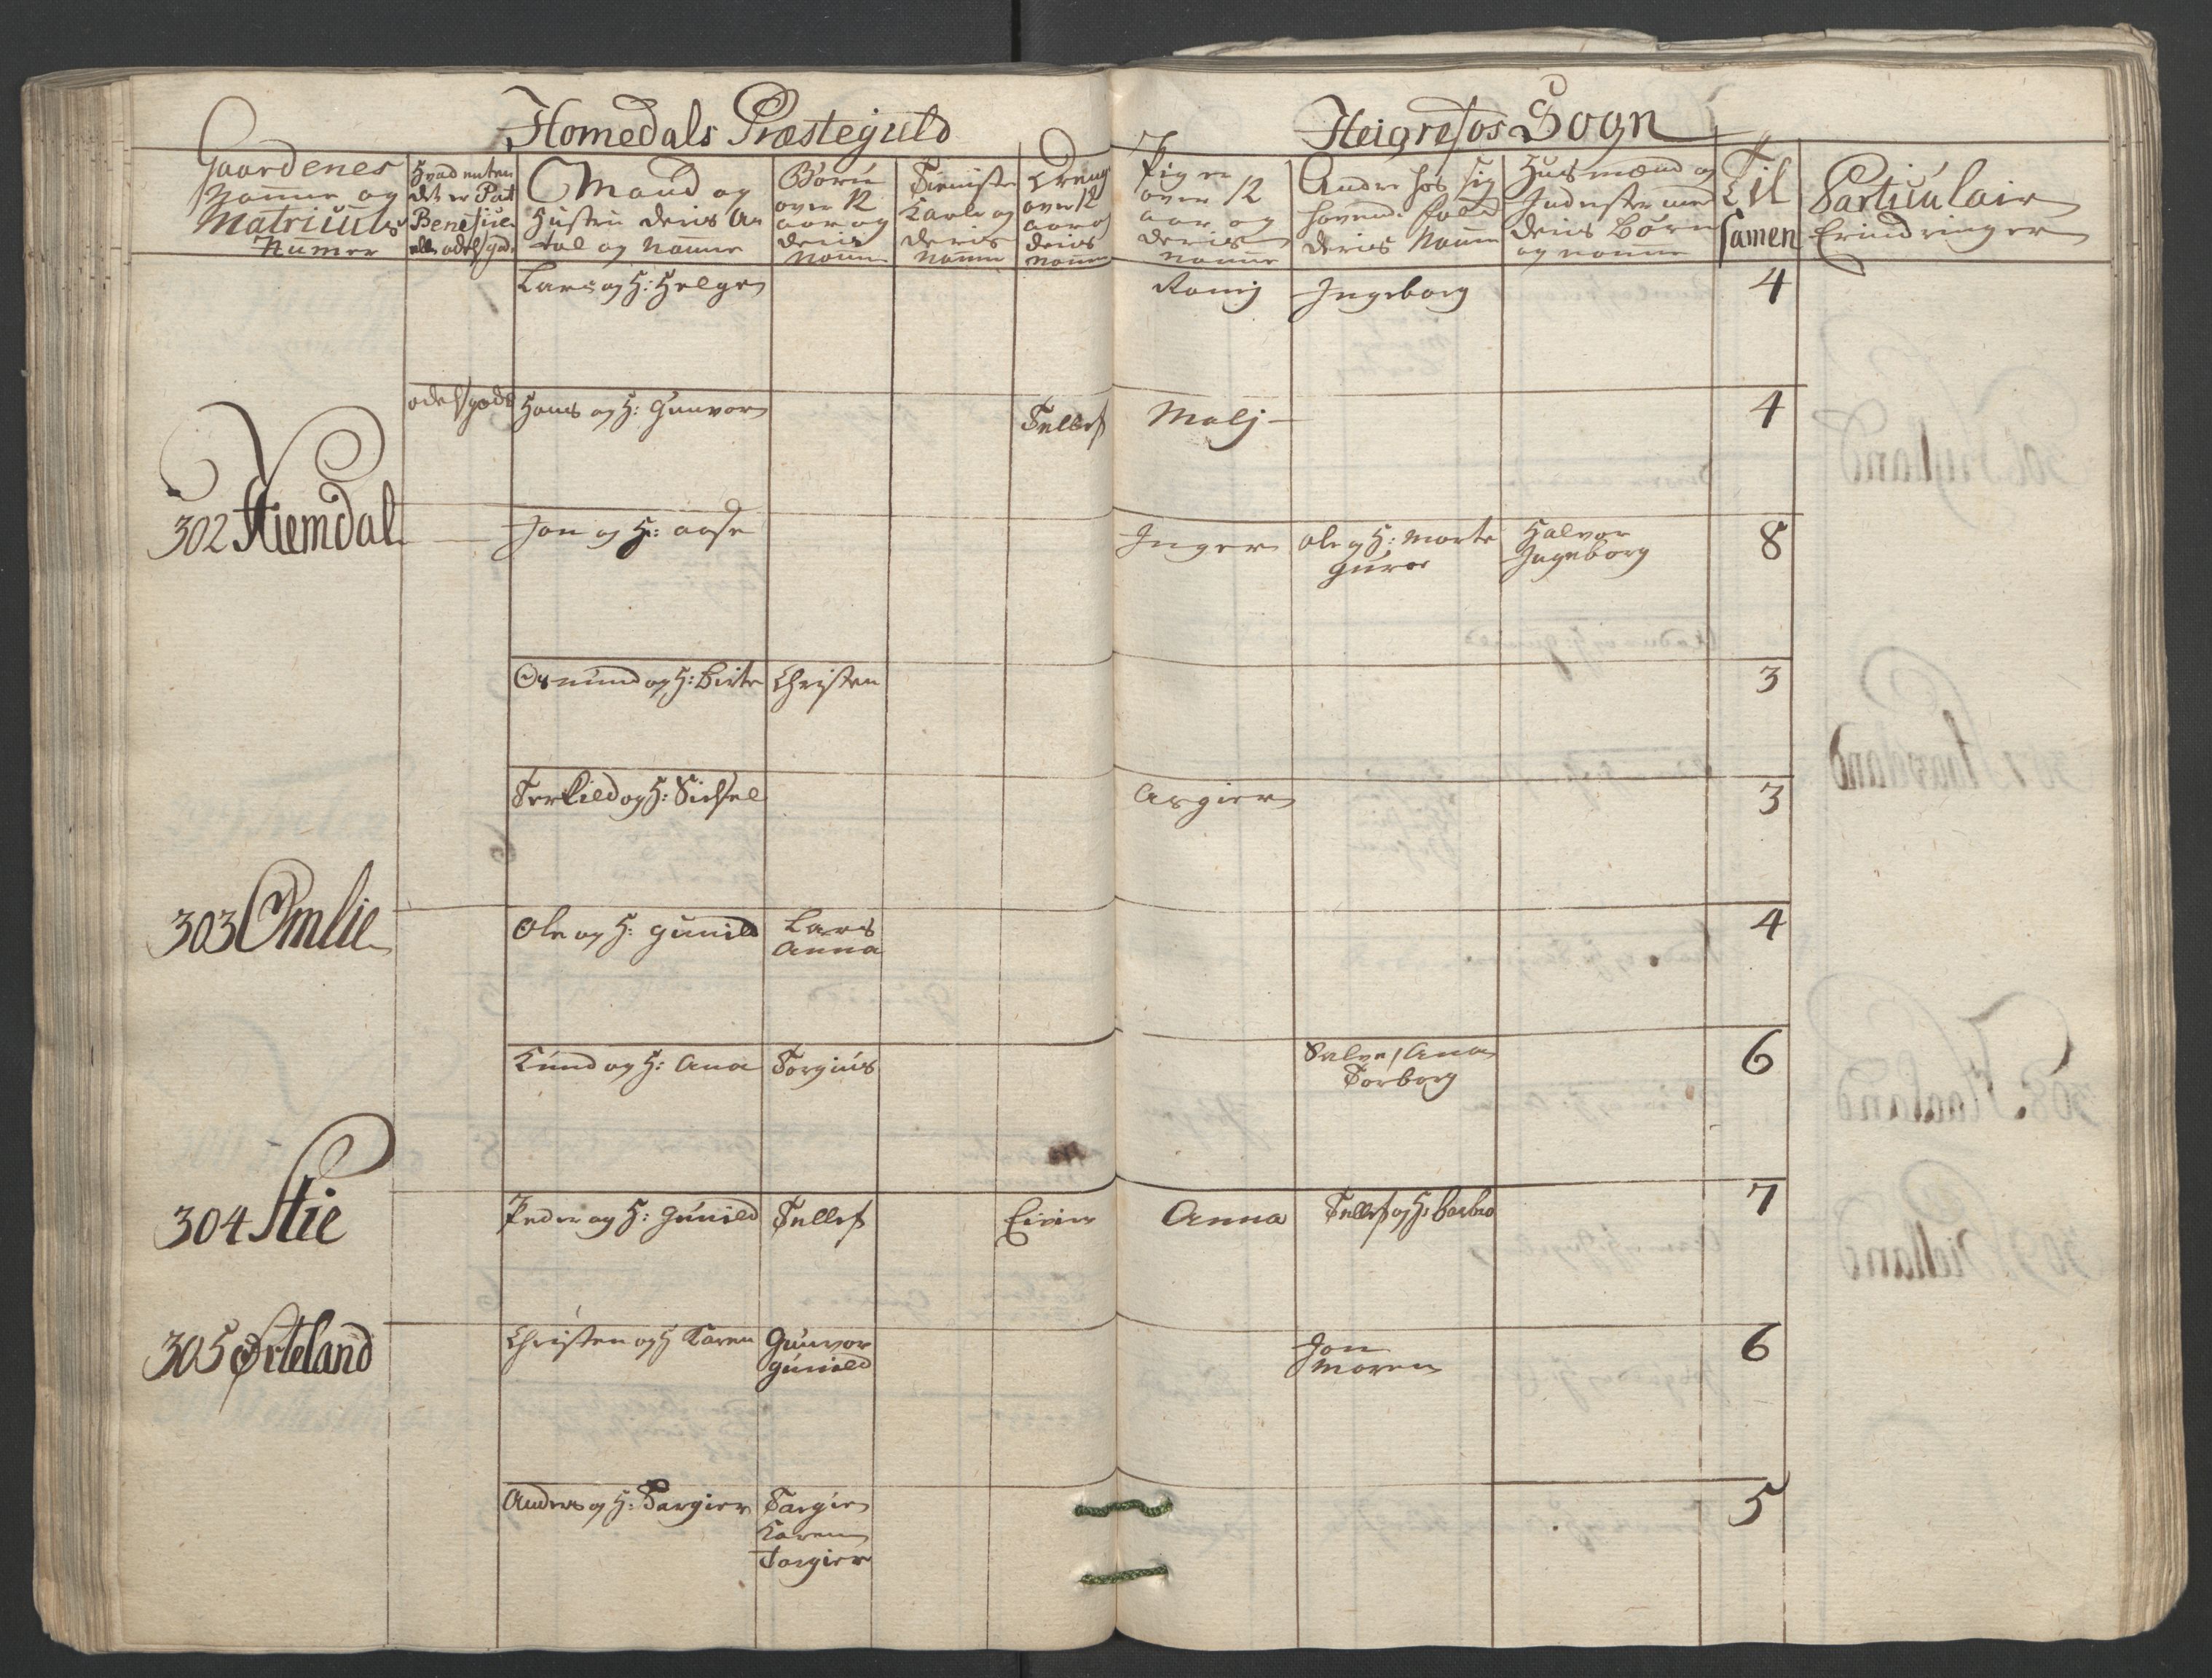 Homedals Præstegield
Heigrefos Sogn
Gaardenes
Nafne og
Matriculs
Numer
Hvad enten
det er Pat
Benefice
eller odelsgods
Mand og
Hustru deris An
tal og Nafne
Børn
over 12
aar og
deris
Nafne
Tieniste
Karle og
deris
Nafne
Drenge
over 12
aar og
deris
Nafne
Piger
over 12
aar og
deris
nafne
Andre hos sig
havende folk
deris Nafne
Husmænd og
Inderster med
deris Børn
og nafne
Til
samen
Particulair
Erindringer
Lars og H: Helge
Ronnig
Ingeborg
4
odelsgods
Hans og H: Gunvor
Tellef
Malj
4
302 Hiemdal
Jon og H: aase
Inger
ole og H: Marte
Guroe
Halvor
Ingeborg
8
Osmund og H: Birte
Christen
3
Terkild og H: Sidsel
Asgier
3
303 Omlie
Ole og H: Gunild
Lars
Anna
4
Knud og H: Ana
Torgius
Salve / Ana
Torborg
6
304 Stie
Peder og H: Gunild
Tellef
Eivin
Anna
Tellef og H: Barbro
7
305 Ørteland
Christen og H Karen
Gunvor
Gunild
Jon
Maren
6
Anders og H: Targier
Targier
Karen
Torgier
5